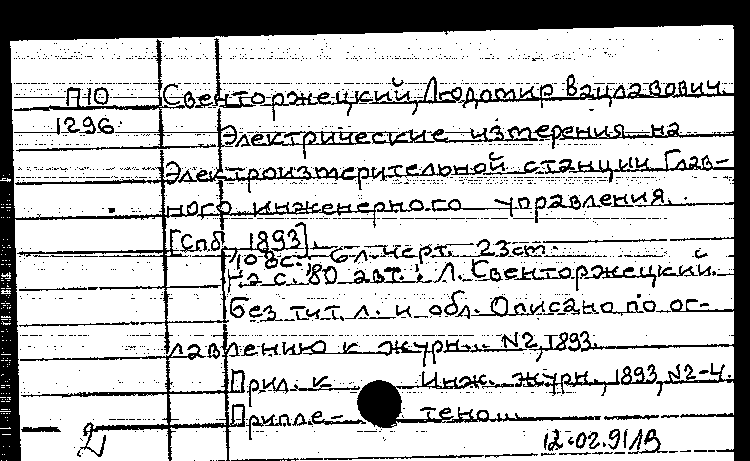 П10 Свенторжецкий, Людомир Вацлавович.
1296. Электрические измерения на
Электроизмерительной станции Глав-
ного инженерного управления.
[Спб, 1893].
108с. 6 л. черт. 23ст.
На с. 80 авт.: Л. Свенторжецкий.
Без тит. л. и обл. Описано по ог-
лавлению к журн... N2, 1893.
Прил. к Инж. журн., 1893, N2-4.
Припле- тено...
2 12.02.91